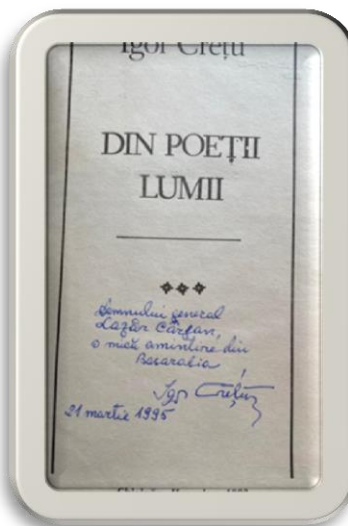 Igor Crețu
DIN POEȚII
LUMII
Domnului general
Lazăr Cârjan,
o mică amintire din
Basarabia
Igor Crețu
21 martie 1995